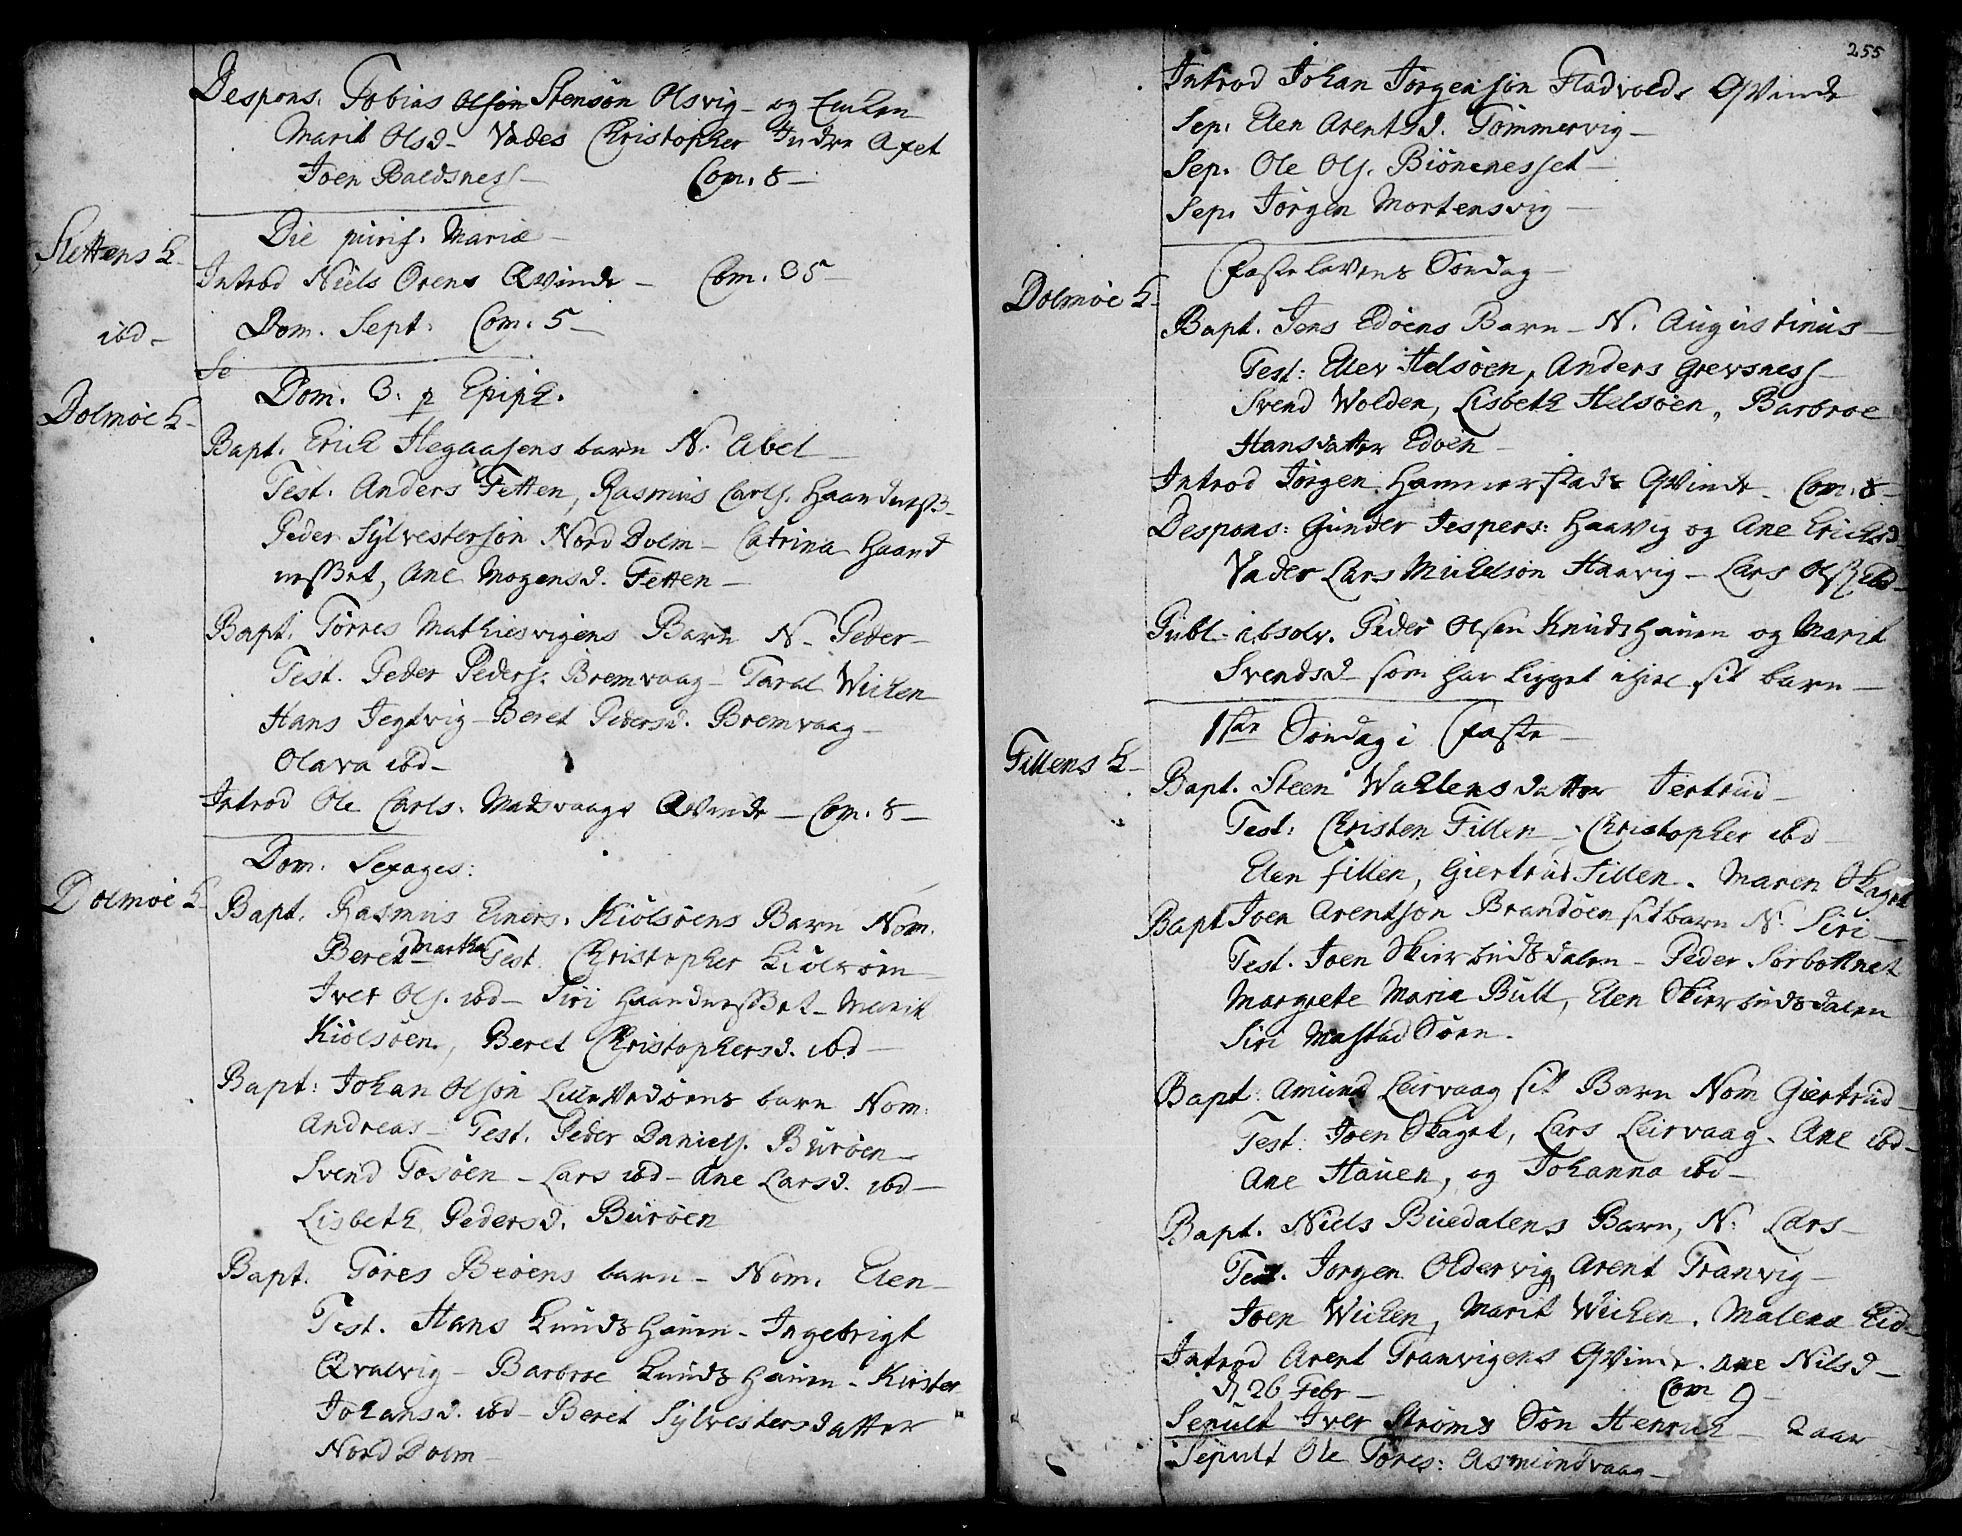 Despons. Tobias Olsøn Stensøn Olsvig - og Enken
Marit Olsd - Vades Christopher Indre Axet
Joen Baldsness - Com. 8 -
Die purif. Mariæ -
Slettens K -
Introd Niels Ørens Qvinde - Com. 35 -
ibd -
Dom. Sept: Com. 5 -
Se
Dom. 3. p Epiph.
Dolmøe K -
Bapt. Erich Hegaasens barn N. Abel -
Test. Anders Fetten, Rasmus Carls. Haandnesß -
Peder Sylvestersøn Nord Dolm - Catrina Haand
nesßet, Ane Mogensd. Fetten -
Bapt. Törres Mathiesvigens Barn N. Petter -
Test. Petter Peders. Bremvaag - Taral Wichen
Hans Jegtvig - Beret Pedersd. Bremvaag -
Olava ibd -
Introd Ole Carls. Madsvaags Qvinde - Com. 8 -
Dom. Sexages:
Dolmøe K
Bapt. Rasmus Einers. Kiölsöens Barn Nom.
Beret Martha Test. Christopher Kiölsöen
Iver Ols. ibd - Siri Haandnesßet - Marit
Kiölsöen, Beret Christophersd. ibd -
Bapt: Johan Olsøn Lille Vedöens barn Nom.
Andreas - Test. Peder Daniels. Buröen -
Svend Tosöen - Lars ibd - Ane Larsd. ibd -
Lisbeth Pedersd. Buröen
Bapt. Töres Beöens barn - Nom. Elen -
Test. Hans Knudshauen - Ingebrigt
Qvalvig - Barbroe Knudshauen - Kirsten
Johansd. ibd - Beret Sylvestersdatter
Nord Dolm -
255
Introd Johan Jörgensøn Fladvolds Qvinde
Sep. Elen Arentsd. Tömmervig -
Sep. Ole Ols. Biönenesset -
Sep. Jörgen Mortensvig -
Fastelavens Söndag -
Dolmøe K -
Bapt. Jens Edöens Barn - N. Augustinus -
Test: Elev Helsöen, Anders Grevsness -
Svend Wolden, Lisbeth Helsöen, Barbroe
Hansdatter Edöen -
Introd Jörgen Hammerstads Qvinde - Com. 8 -
Despons: Gunder Jespers: Haavig og Ane Erichsd -
Vader Lars Michelsøn Haavig - Lars Ols ibd -
Publ. absolv. Peder Olsen Knudshauen og Marit
Svendsd - som har ligget ihiel sit barn -
1ste Söndag i Faste -
Fillens K -
Bapt. Steen Wahlens datter Jertrud -
Test: Christen Fillen - Christopher ibd -
Elen Fillen, Giertrud Fillen. Maren Skaget
Bapt Joen Arentsøn Brandöen sit barn N. Siri -
Test. Joen Skiersbudsdalen - Peder Sorbottnet
Margrete Maria Bull, Elen Skiersbudsdalen
Siri Mastad Söen.
Bapt. Amund Leirvaag sit Barn Nom Giertrud -
Test: Joen Skaget, Lars Leirvaag. Ane ibd -
Ane Hauen, og Johanna ibd -
Bapt. Niels Buedalens Barn, N. Lars -
Test. Jörgen Oldervig, Arent Tranvig -
Joen Wichen, Marit Wichen. Malena Eid -
Introd Arent Tranvigens Qvinde. Ane Nilsd -
d 26 Febr - Com 9 -
Sepult Iver Ströms Sön Henrich - 2 aar
Sepult Ole Töres: Asmundvaag -